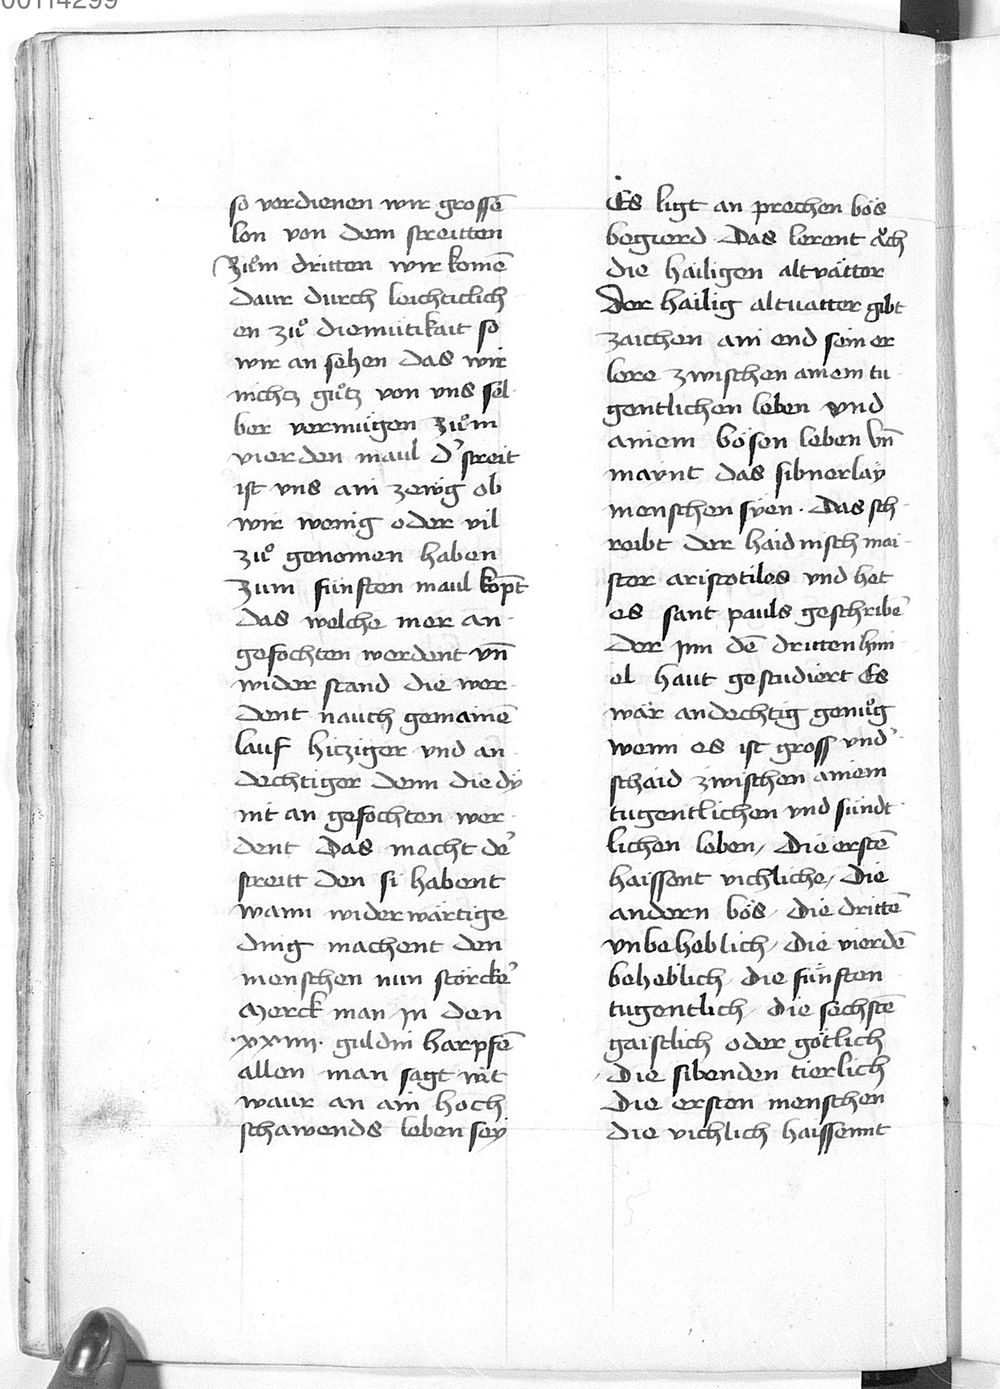 00114299
so verdienen wir grossē
lon von dem streitten
Zuͦm dritten wir komē
daur durch leichticlich
en zuͦ diemütikait so
wir an sehen das wir
nichcz guͦtz von vns sel
ber vermügen Zuͦm
vierden maul dʼ streit
ist vns ain zewg ob
wir wenig oder vil
zuͦ genomen haben
Zum fünften maul kōpt
das welche mer an
gefochten werdent vn̄
wider stand die wer
dent nauch gemainē
lauf hicziger vnd an
dechtiger denn die dÿ
nit an gefochten wer
dent Das macht deʼ
streitt den si habent
wann wider wärtige
ding machent den
menschen nun störckeʼ
Merck man jn den
·xxiiii· guldin harpfē
allen man sagt wit
waur an ain hoch
schawends leben seÿ
Es ligt an prechen bös
begierd Das lerent ăch
die hailigen altvätter
Der hailig altuatter gibt
zaichen am end seiner
lere zwischen ainem tu
gentlichen leben vnd
ainem bösen leben Vn̄
maynt das sibnerlaÿ
menschen syen · Das sch
reibt der haidnisch mai
ster aristotiles vnd het
es sant pauls geschribē
der jnn dē dritten him
el haut gestudiert Es
wär andechtig genuͦg
wenn es ist gross vnd
schaid zwischen ainem
tugentlichen vnd sündt
lichen leben / Die erstē
haissent vichliche / Die
andern bös / Die drittē
vnbeheblich / Die vierdē
beheblich die fünften
tugentlich / die sechstē
gaistlich oder götlich
/ Die sibenden tierlich
Die ersten menschen
die vichlich haissennt